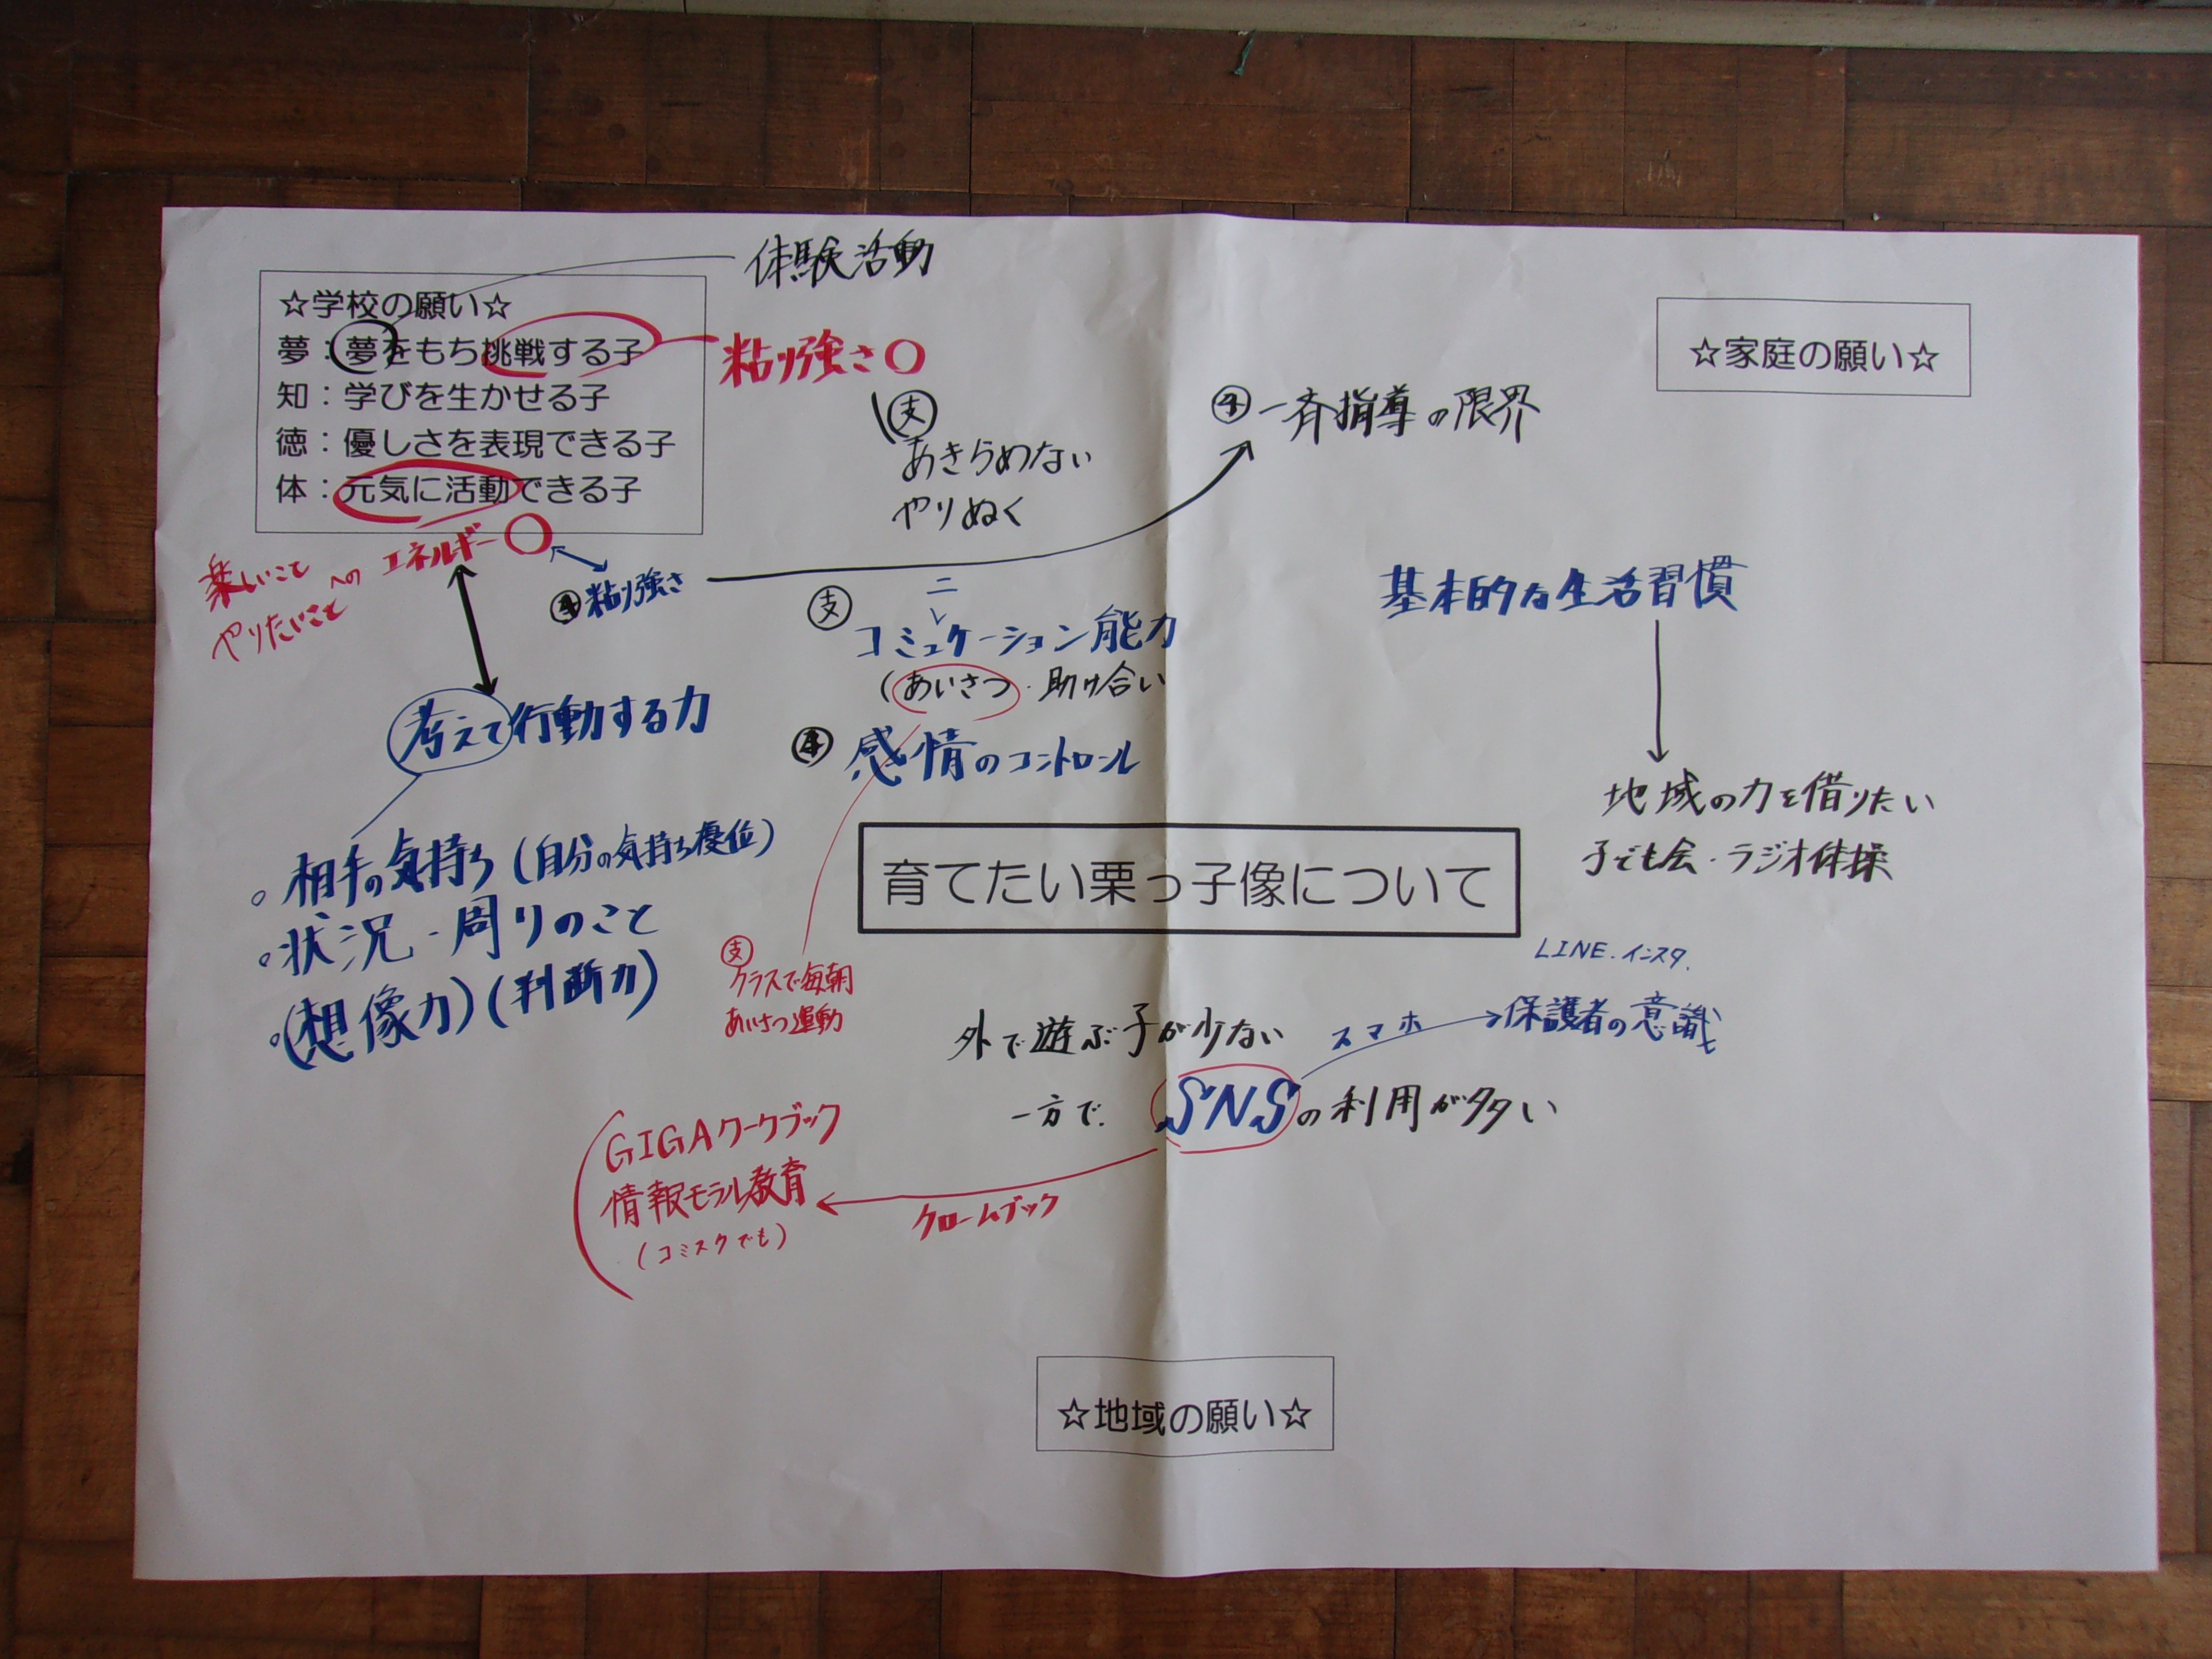 体験活動
☆学校の願い☆
夢：夢をもち挑戦する子
知：学びを生かせる子
徳：優しさを表現できる子
体：元気に活動できる子
粘り強さ○
支
あきらめない
やりぬく
一斉指導の限界
☆家庭の願い☆
楽しいこと
やりたいこと
への
エネルギー○
粘り強さ
支
ニ
コミュケーション能力
(あいさつ・助け合い
感情のコントロール
考えて行動する力
。相手の気持ち(自分の気持ち優位)
。状況・周りのこと
。(想像力)(判断力)
基本的な生活習慣
地域の力を借りたい
子ども会・ラジオ体操
育てたい栗っ子像について
支
クラスで毎朝
あいさつ運動
LINE.インスタ.
外で遊ぶ子が少ない
スマホ
保護者の意識
一方で.
SNSの利用が多い
GIGAワークブック
情報モラル教育
(コミスクでも)
クロームブック
☆地域の願い☆